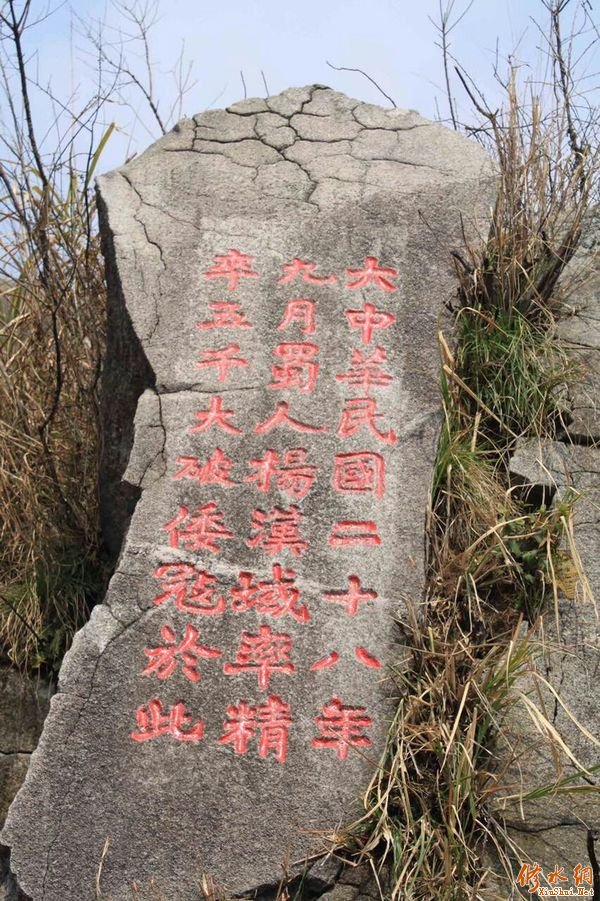 大中華民國二十八年
九月蜀人楊漢域率精
卒五千大破倭寇於此
修水網
XiuShui.Net